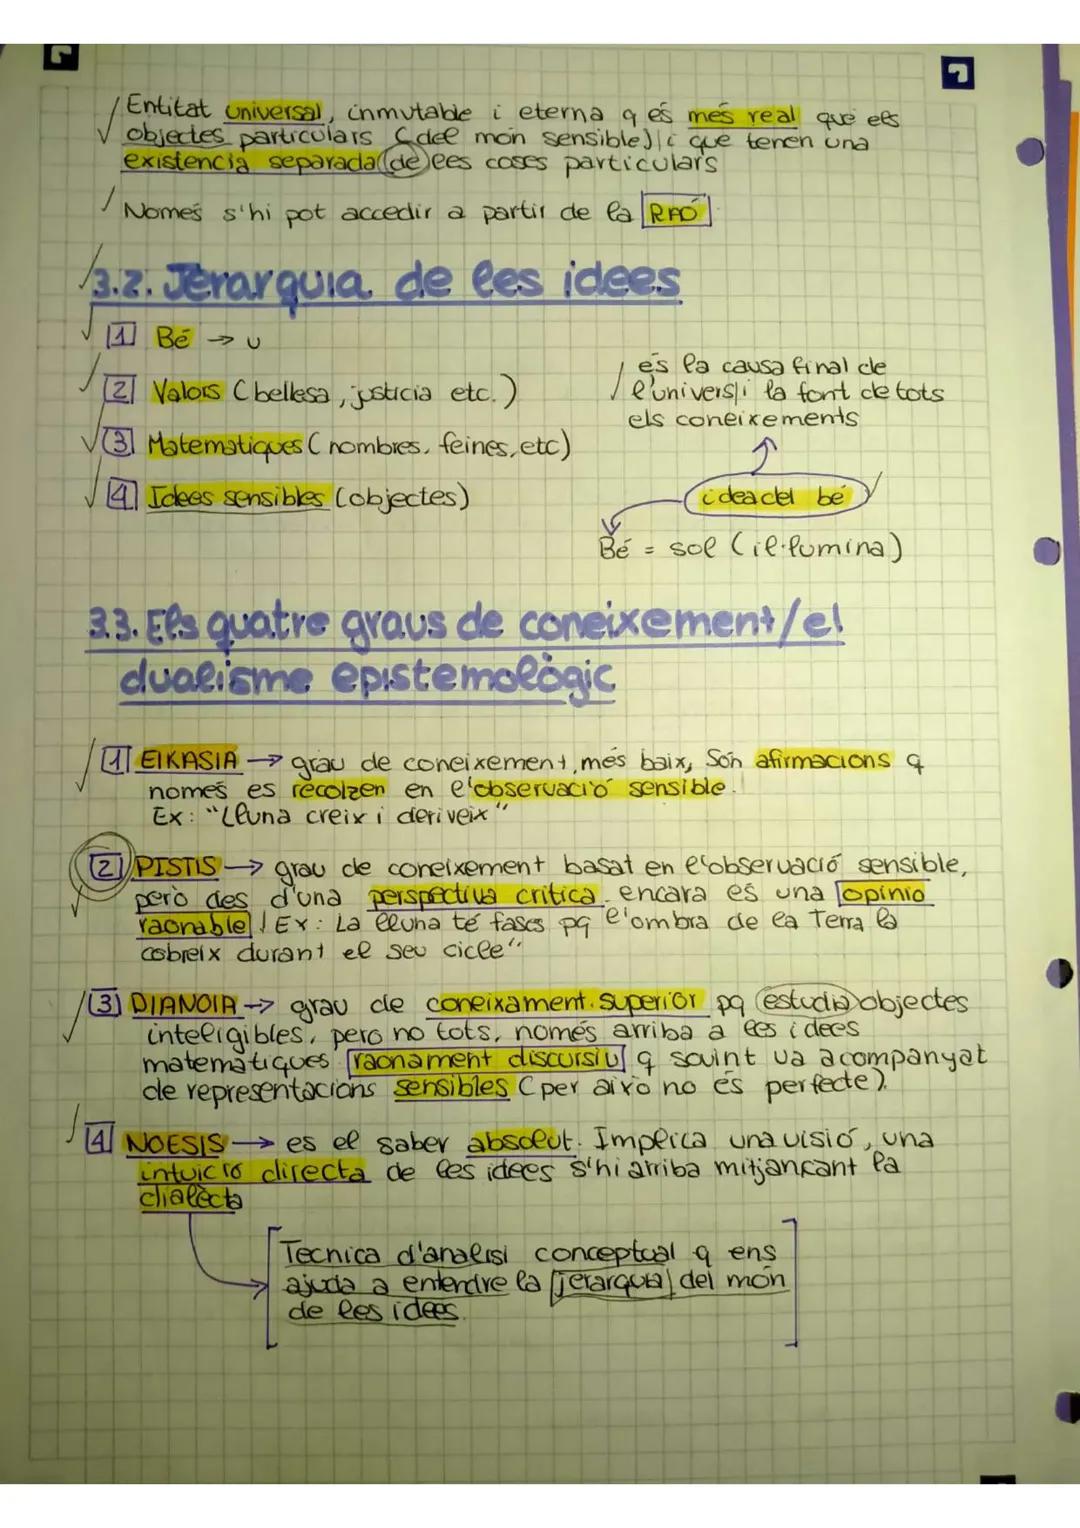 Entitat universal, inmutable i eterna q és més real que els
objectes particulars (del món sensible) i que tenen una
existencia separada de les coses particulars
Només s'hi pot accedir a partir de la RAÓ
3.2. Jerarquia de les idees
1 Bé → U
2 Valors (bellesa, justicia etc.)
3 Matematiques (nombres, feines, etc)
4 Idees sensibles (objectes)
és la causa final de
l'univers i la font de tots
els coneixements
idea del bé
Bé = sol (il·lumina)
3.3. Els quatre graus de coneixement/el
dualisme epistemològic
1 EIKASIA → grau de coneixement, més baix, Són afirmacions q
només es recolzen en l'observació sensible.
Ex: "Lluna creix i deriveix"
2 PISTIS → grau de coneixement basat en l'observació sensible,
però des d'una perspectiva critica. encara és una opinio
raonable Ex: La lluna té fases pq l'ombra de la Terra la
cobreix durant el seu cicle"
3 DIANOIA → grau de coneixament superior pq estudia objectes
inteligibles, pero no tots, només arriba a les idees
matematiques raonament discursiu q sovint va acompanyat
de representacions sensibles (per aixo no és perfecte).
4 NOESIS → es el saber absolut. Implica una visió, una
intuicio directa de les idees s'hi arriba mitjançant la
dialècta
Tecnica d'analisi conceptual q ens
ajuda a entendre la jerarquia del món
de les idees.